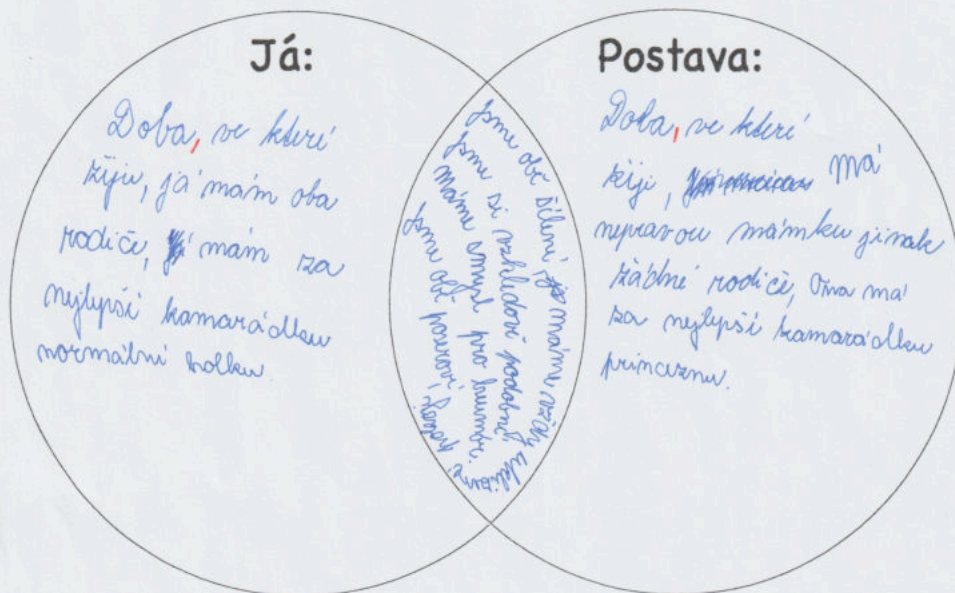 Já:
Doba, ve které
žiju, já mám oba
rodiče, mám za
nejlepší kamarádku
normální holku
jsme obě šílené, máme vždy
jsme si vzhledově podobné
máme smysl pro humor.
jsme obě
Postava:
Doba, ve které
žije, má
nepravou mámku jinak
žádné rodiče, Ona má
za nejlepší kamarádku
princeznu.